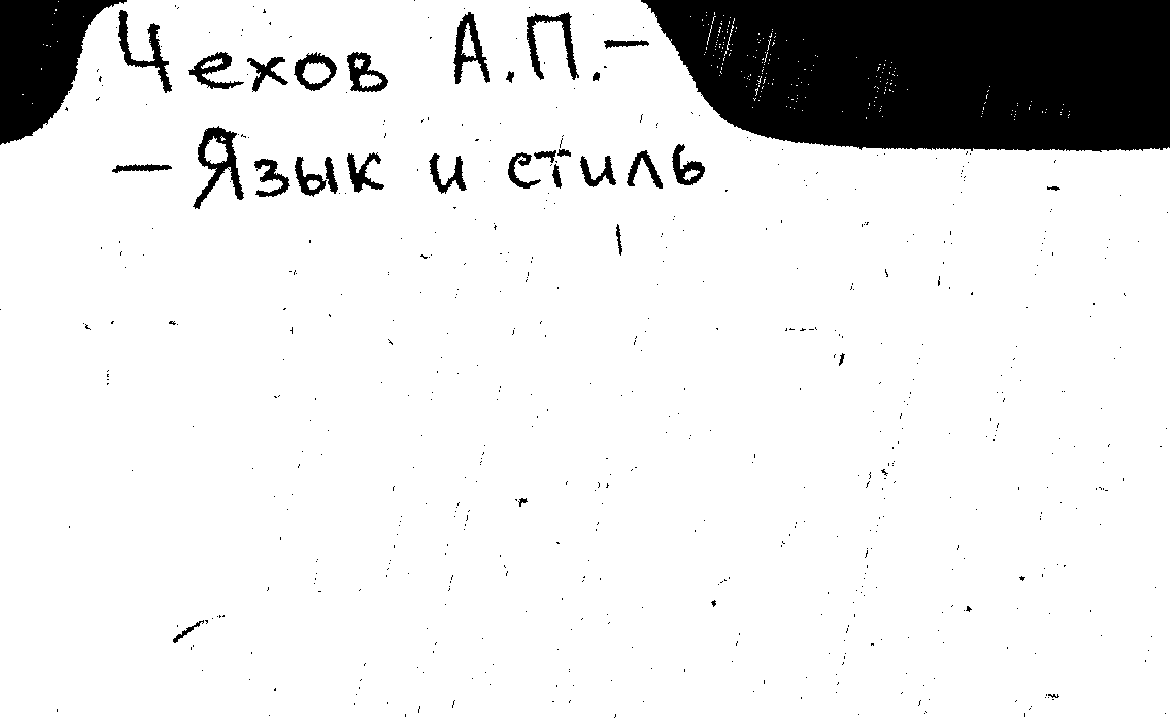 Чехов А.П.—
— Язык и стиль